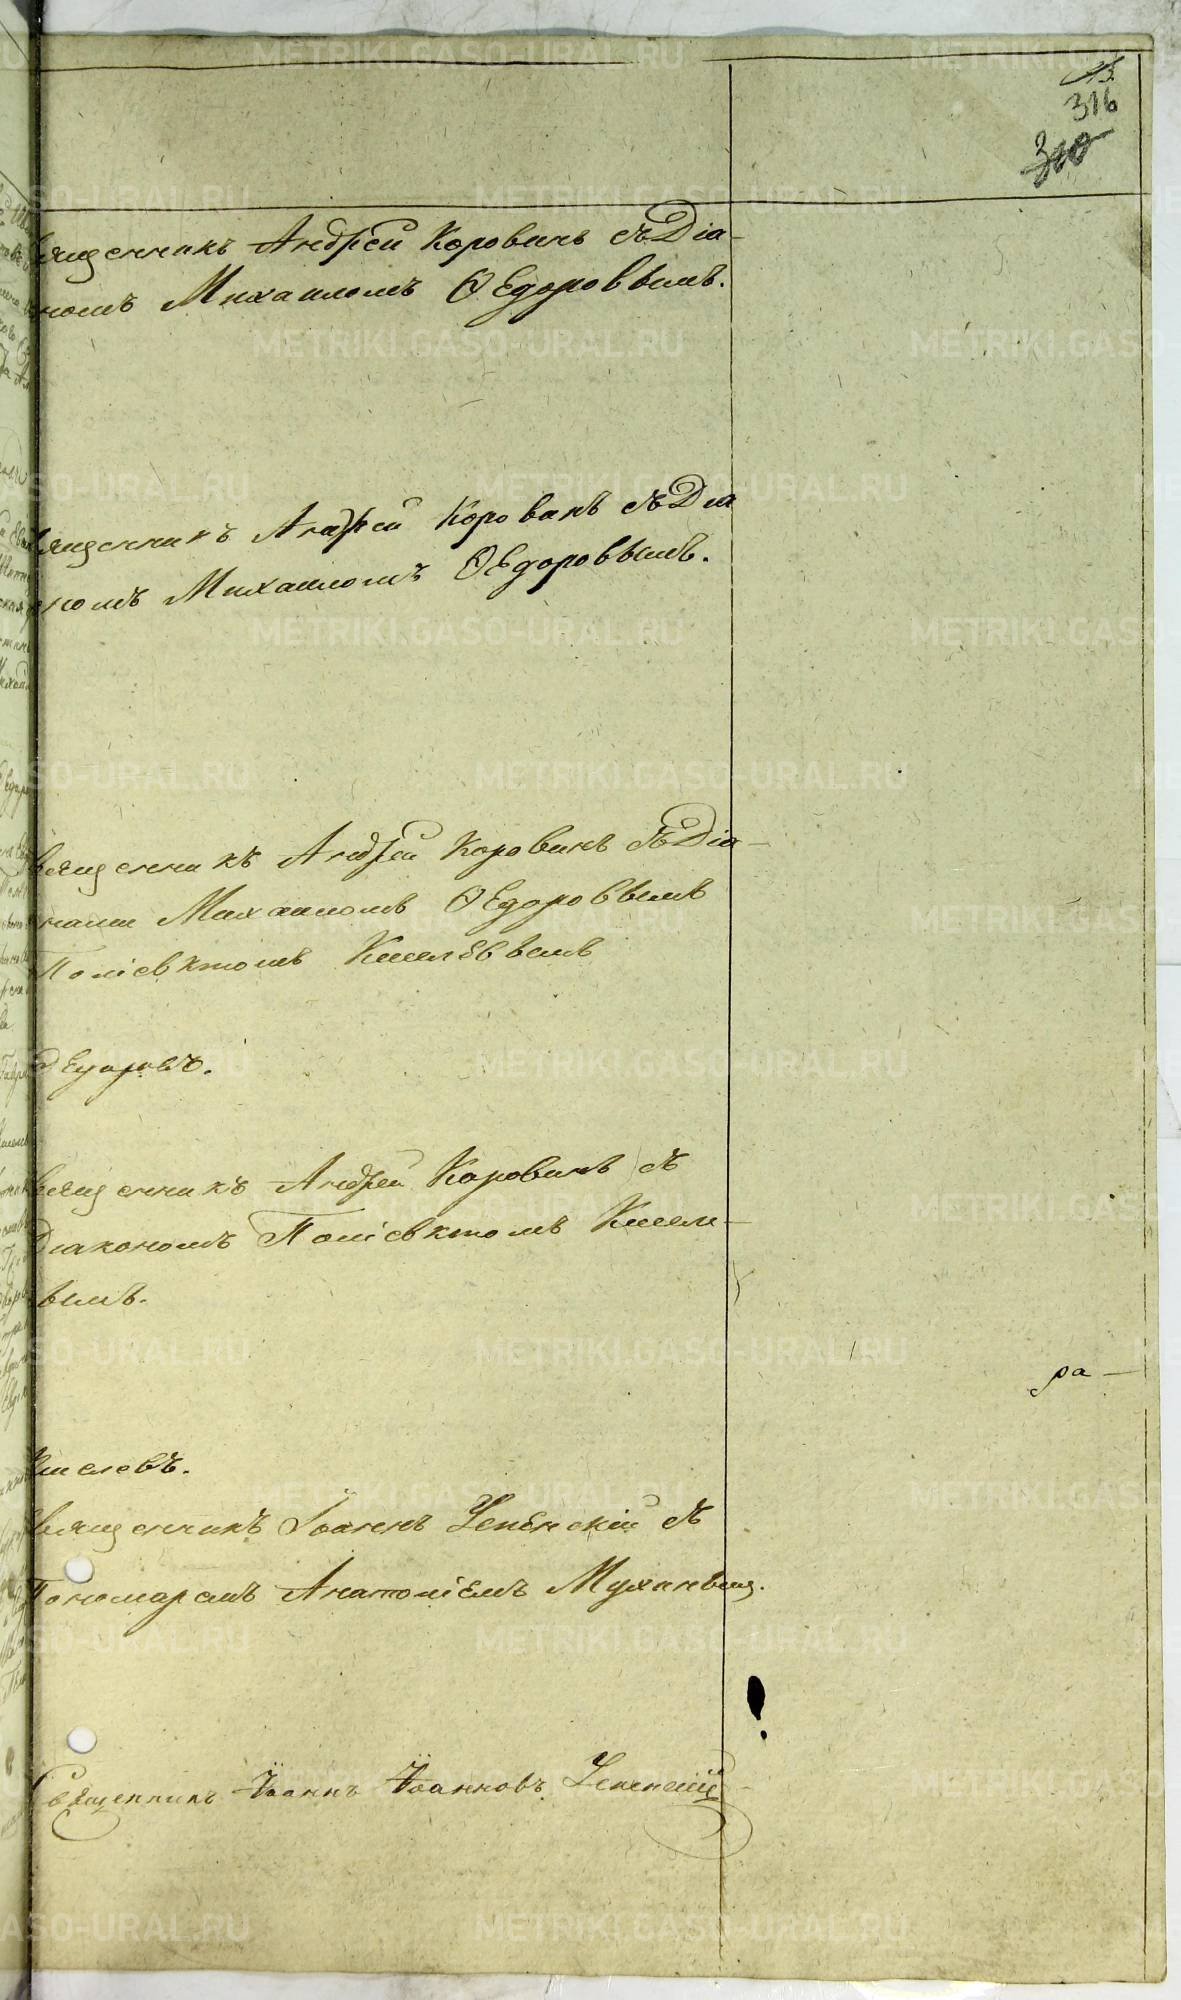 13
316
310
вященникъ Андрей Коровинъ съ Діа-
номъ Михаиломъ Ѳедоровымъ.
вященникъ Андрей Коровинъ съ Діа
номъ Михаиломъ Ѳедоровымъ.
вященникъ Андрей Коровинъ съ Діа-
нами Михаиломъ Ѳедоровымъ
Поліевктомъ Киселёвымъ
Ѳедоровъ.
вященникъ Андрей Коровинъ съ
Діакономъ Поліевктомъ Кисел-
вымъ.
ра-
Киселевъ.
вященникъ Іоаннъ Успенскій съ
Пономаремъ Анатоліемъ Мухинымъ.
Священникъ Іоаннъ Іоанновъ Успенскій
METRIKI.GASO-URAL.RU